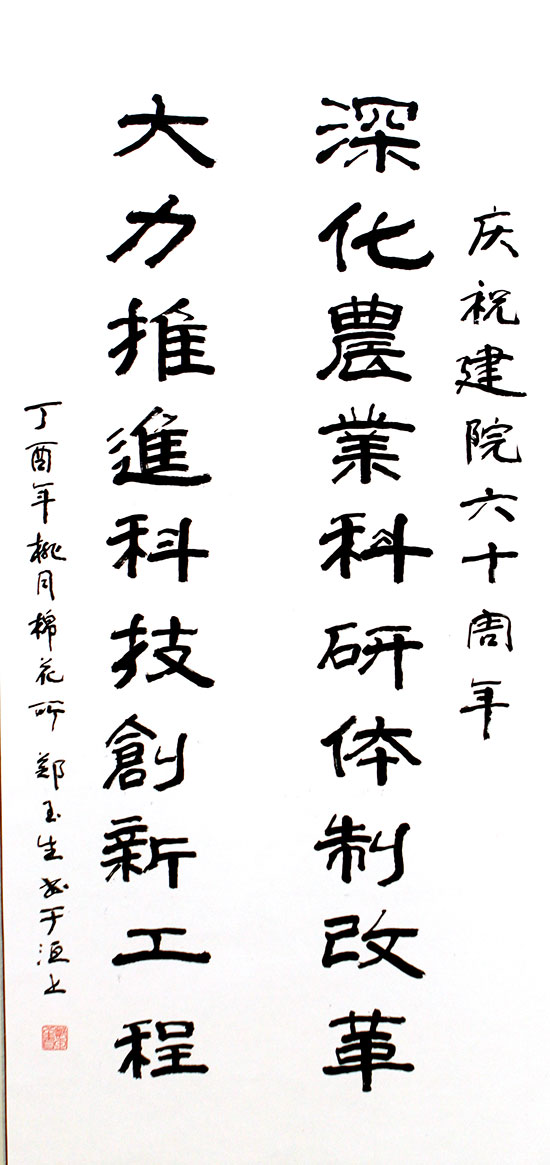 庆祝建院六十周年
深化農業科研体制改革
大力推進科技創新工程
丁酉年桃月棉花所郑玉生书于洹上